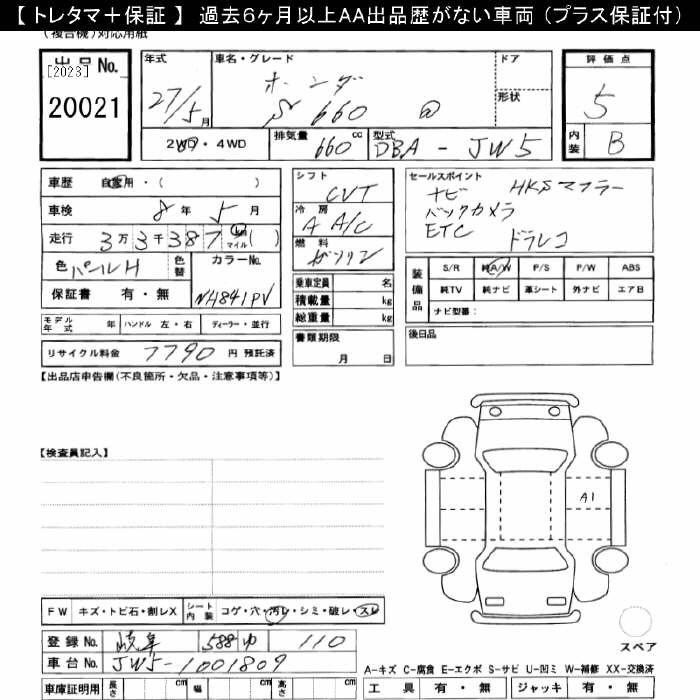 【 トレタマ＋保証 】 過去6ヶ月以上AA出品歴がない車両 (プラス保証付)
(複合機)対応用紙
出品No. [2023] 20021
年式 27/5月
車名・グレード ホンダ S 660 α
ドア
形状
評価点 5
内装 B
2WD・4WD
排気量 660 cc
型式 DBA - JW5
車歴 自家用・( )
車検 8年 5月
走行 3万3千387 km マイル ( )
色 パールH
色替
カラーNo. NH841PV
保証書 有・無
モデル年式 年 ハンドル 左・右 ディーラー・並行
リサイクル料金 7790 円 預託済
シフト CVT
冷房 A A/C
燃料 ガソリン
乗車定員 名
積載量 kg
総重量 kg
書類期限 月 日
セールスポイント
ナビ HKSマフラー
バックカメラ
ETC ドラレコ
装備品
S/R 純A/W P/S P/W ABS
純TV 純ナビ 革シート 外ナビ エアB
ナビ型番:
後日品
【出品店申告欄(不良箇所・欠品・注意事項等)】
【検査員記入】
A1
スペア
FW キズ・トビ石・割レX シート内装 コゲ・穴・汚レ・シミ・破レ・スレ
登録No. 岐阜 588 ゆ 110
車台No. JW5-1001809
車庫証明用 長さ cm 幅 cm 高さ cm
A-キズ C-腐食 E-エクボ S-サビ U-凹ミ W-補修 XX-交換済
工具 有・無 ジャッキ 有・無